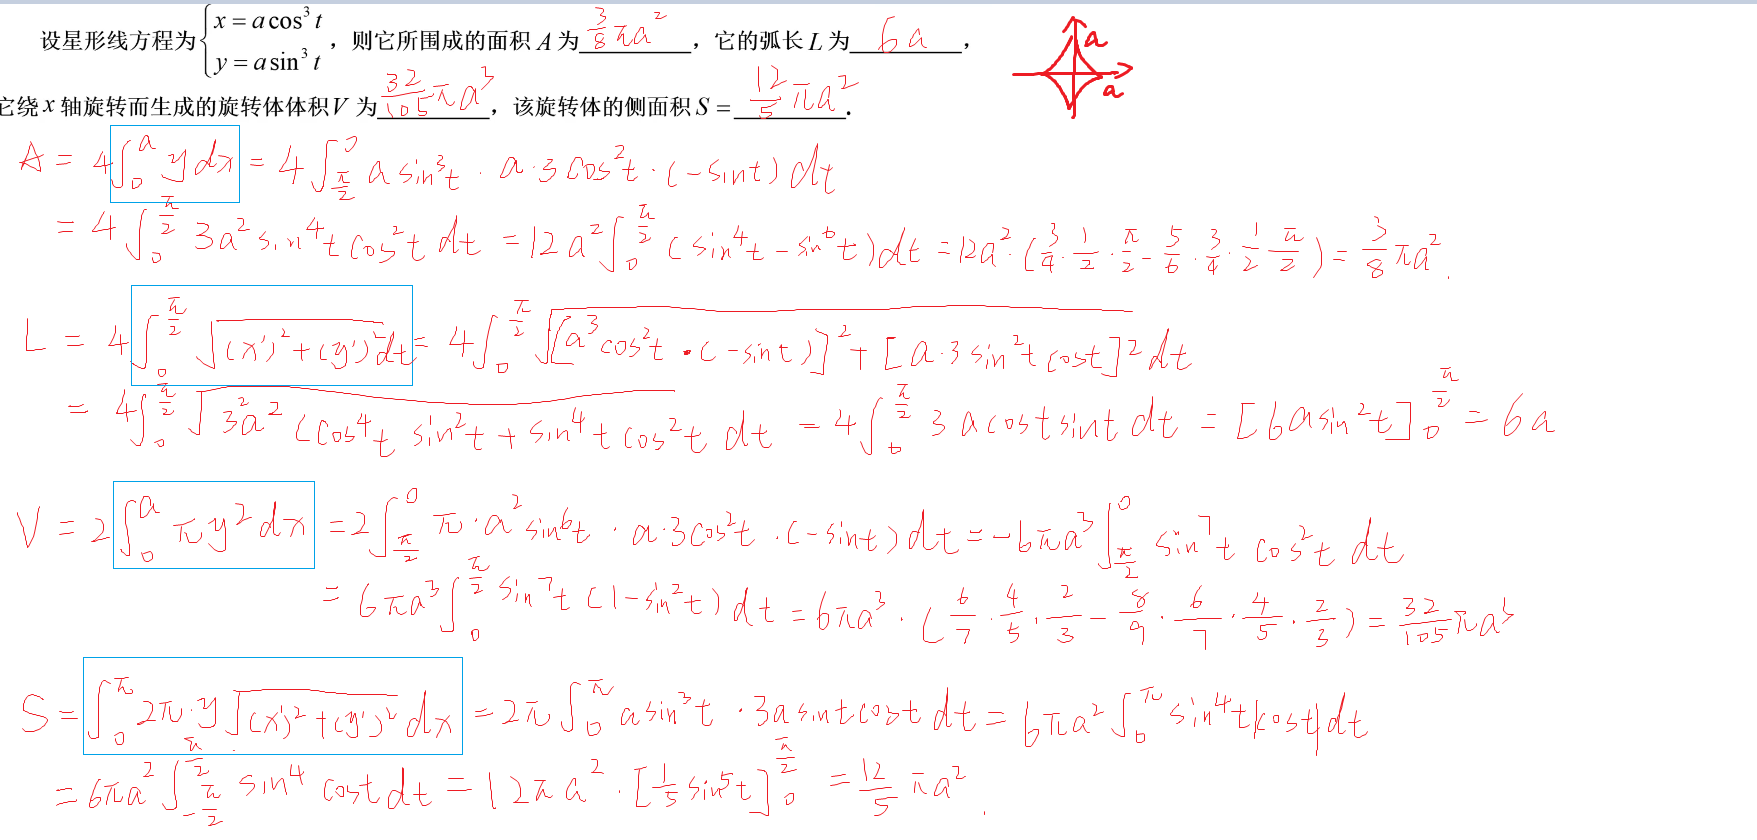 设星形线方程为{x = a cos³ t, y = a sin³ t，则它所围成的面积 A 为 3/8 πa²，它的弧长 L 为 6a，
它绕 x 轴旋转而生成的旋转体体积 V 为 32/105 πa³，该旋转体的侧面积 S = 12/5 πa².
a
a
A = 4∫₀^a y dx = 4∫_{π/2}^0 a sin³t · a·3cos²t · (-sint) dt
= 4∫₀^{π/2} 3a² sin⁴t cos²t dt = 12a² ∫₀^{π/2} (sin⁴t - sin⁶t) dt = 12a² · (3/4 · 1/2 · π/2 - 5/6 · 3/4 · 1/2 π/2) = 3/8 πa².
L = 4∫₀^{π/2} √((x')² + (y')²) dt = 4∫₀^{π/2} √([a3cos²t · (-sint)]² + [a·3sin²t cost]²) dt
= 4∫₀^{π/2} √(3²a²(cos⁴t sin²t + sin⁴t cos²t dt = 4∫₀^{π/2} 3a cost sint dt = [6a sin²t]₀^{π/2} = 6a
V = 2∫₀^a πy² dx = 2∫_{π/2}^0 π·a² sin⁶t · a·3cos²t · (-sint) dt = -6πa³ ∫_{π/2}^0 sin⁷t cos²t dt
= 6πa³ ∫₀^{π/2} sin⁷t (1-sin²t) dt = 6πa³ · (6/7 · 4/5 · 2/3 - 8/9 · 6/7 · 4/5 · 2/3) = 32/105 πa³
S = ∫₀^π 2π·y √((x')² + (y')²) dx = 2π ∫₀^π a sin³t · 3a sint cost dt = 6πa² ∫₀^π sin⁴t |cost| dt
= 6πa² ∫_{-π/2}^{π/2} sin⁴ cost dt = 12πa² · [1/5 sin⁵t]₀^{π/2} = 12/5 πa².